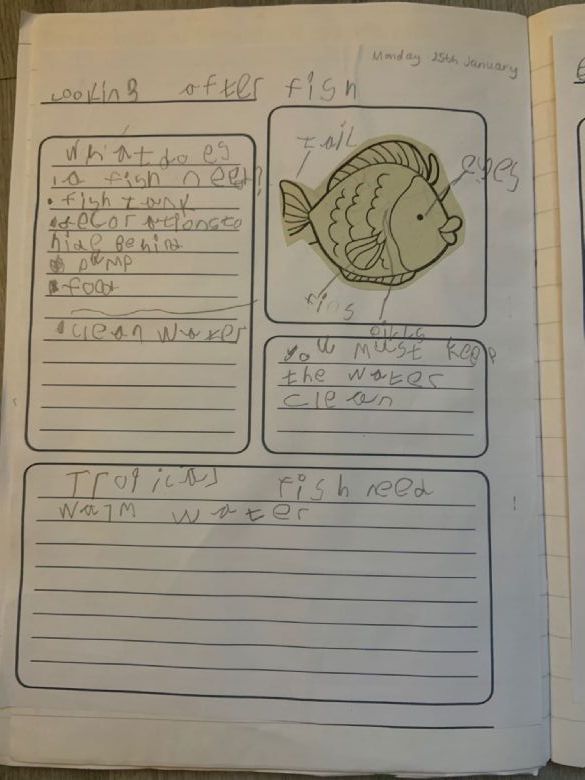 Monday 25th January
Looking after fish
What does
a fish need?
• fish tank
• decorations to
hide behind
• pump
• food
• clean water
tail
eyes
fins
gills
you must keep
the water
clean
Tropical fish need
warm water